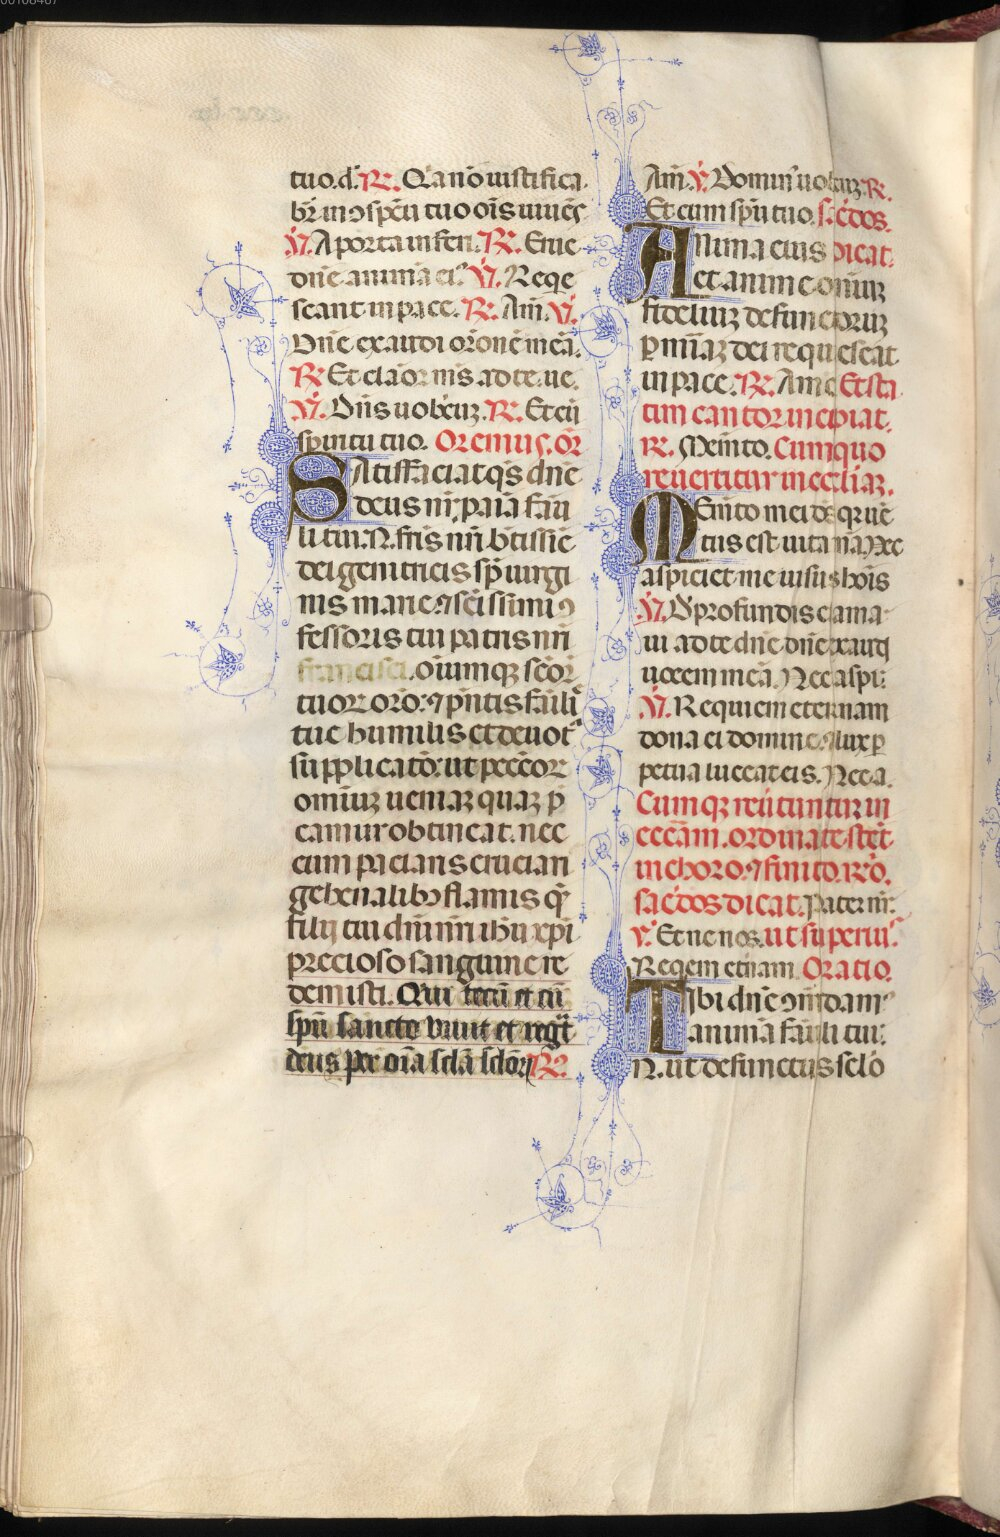 00108467
tuo.d. R̃. Q̃a nō iustifica
br̃ in ɔspc̄u tuo oīs uiuēs
V̄. A porta inferi. R̃. Erue
dn̄e animā ei⁹. V̄. Reqe
scant in pace. R̃. Am̄. V̄.
Dn̄e exaudi or̄onē meā.
R̃ Et clāor m̄s ad te ue.
V̄. Dn̄s uobcuꝫ. R̃. Et cū
spiritu tuo. Oremus. or̄
Satiffaciat q̄s dn̄e
deus nr̄ p aīa fāu
li tui. N. fr̄is nr̄i btissīe
dei genitricis sp̄ uirgi
nis marie. ⁊ sc̄issimi ɔ
fessoris tui patris nr̄i
francisci. oīumqꝫ sc̄or
tuoꝝ or̄o: ⁊ pn̄tis fāuli
tue humilis et deuot
supplicatō: ut peccōꝝ
omniuꝫ ueniaꝫ quaꝫ p̄
camur obtineat. nec
eum paciaris cruciari
gehenalibꝫ flamis q̄
filij tui dn̄i nr̄i ihū xp̄i
precioso sanguine re
demisti. Qui tecū et cū
spū sancto viuit et regt
deus per oīa sclā sclōꝝ R̃.
Am̄. V̄. Domin⁹ uobcuꝫ. R̃.
Et cum spū tuo. sac̄dos
Anima eius dicat.
et anime oīniuꝫ
fideliuꝫ defunctoruꝫ
ꝑ mīaꝫ dei requiescāt
in pace. R̃. Amē Et sta
tim cantor incipiat.
R̃. Mem̄to. Cumquo
reuertitur in ecc̄liaꝫ.
Mem̄to mei dēs qr uē
tus est uita mā nec
aspiciet me uisus hoīs
V̄. D̄ profundis clama
ui ad te dn̄e dn̄e exaudi
uocem meā. Nec aspi:
V̄. Requiem eternam
dona ei domine. ⁊ lux ꝑ
petua luceat eis. Nec a.
Cumqꝫ reūtuntur in
ecc̄am. ordinate stēt
in choro. ⁊ finito. R̃o.
sac̄dos dicat. Pater nr̄:
V̄. Et ne nos. ut superiu⁹.
Reqem et̄nam Oratio.
Tibi dn̄e ɔm̄dam⁹
animā fāuli tui:
N. ut defunctus sclo